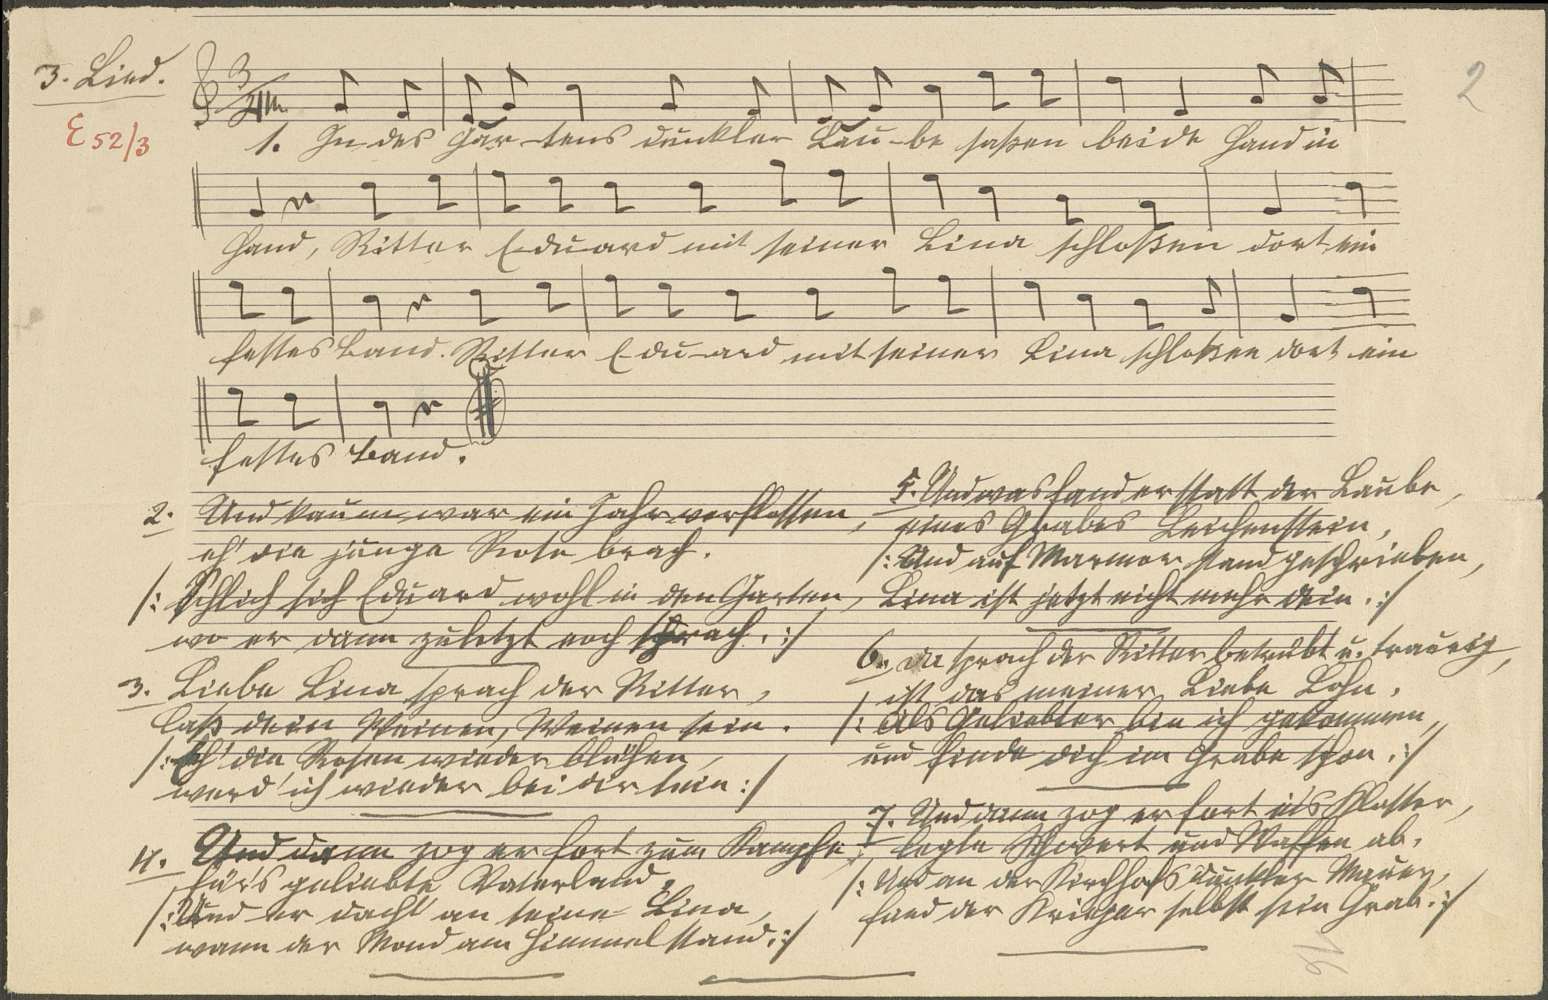 3. Lied.
2
E 52/3
1. In des Gar-tens dunkler Lau-be saßen beide Hand in
Hand, Ritter Eduard mit seiner Lina schloßen dort ein
festes Band. Ritter Eduard mit seiner Lina schloßen dort ein
festes Band.
2. Und kaum war ein Jahr verflossen,
eh' die junge Rose brach.
/: Schlich sich Eduard wohl in den Garten,
wo er dann zuletzt noch sprach. :/
3. Liebe Lina, sprach der Ritter,
laß dein Weinen, Weinen sein.
/: Eh' die Rosen wieder blühen,
werd' ich wieder bei dir sein :/
4. Und dann zog er fort zum Kampfe,
für's geliebte Vaterland,
/: Und er dacht' an seine Lina,
wann der Mond am Himmel stand. :/
5. Und was fand er statt der Laube,
eines Grabes Leichenstein,
/: Und auf Marmor stand geschrieben,
Lina ist jetzt nicht mehr dein. :/
6. Da sprach der Ritter betrübt u. traurig,
ist das meiner Liebe Lohn.
/: Als Geliebter bin ich gekommen,
und finde dich im Grabe schon. :/
7. Und dann zog er fort in's Kloster,
legte Schwert und Waffen ab.
/: Und an der Kirchhofs dunkler Mauer,
fand der Krieger selbst sein Grab. :/